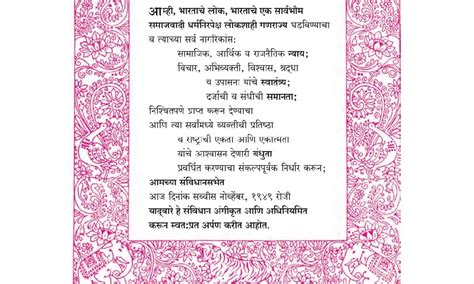 आम्ही, भारताचे लोक, भारताचे एक सार्वभौम
समाजवादी धर्मनिरपेक्ष लोकशाही गणराज्य घडविण्याचा
व त्याच्या सर्व नागरिकांस:
सामाजिक, आर्थिक व राजनैतिक न्याय;
विचार, अभिव्यक्ती, विश्वास, श्रद्धा
व उपासना यांचे स्वातंत्र्य;
दर्जाची व संधीची समानता;
निश्चितपणे प्राप्त करून देण्याचा
आणि त्या सर्वांमध्ये व्यक्तीची प्रतिष्ठा
व राष्ट्राची एकता आणि एकात्मता
यांचे आश्वासन देणारी बंधुता
प्रवर्धित करण्याचा संकल्पपूर्वक निर्धार करून;
आमच्या संविधानसभेत
आज दिनांक सव्वीस नोव्हेंबर, १९४९ रोजी
याद्वारे हे संविधान अंगीकृत आणि अधिनियमित
करून स्वत:प्रत अर्पण करीत आहोत.